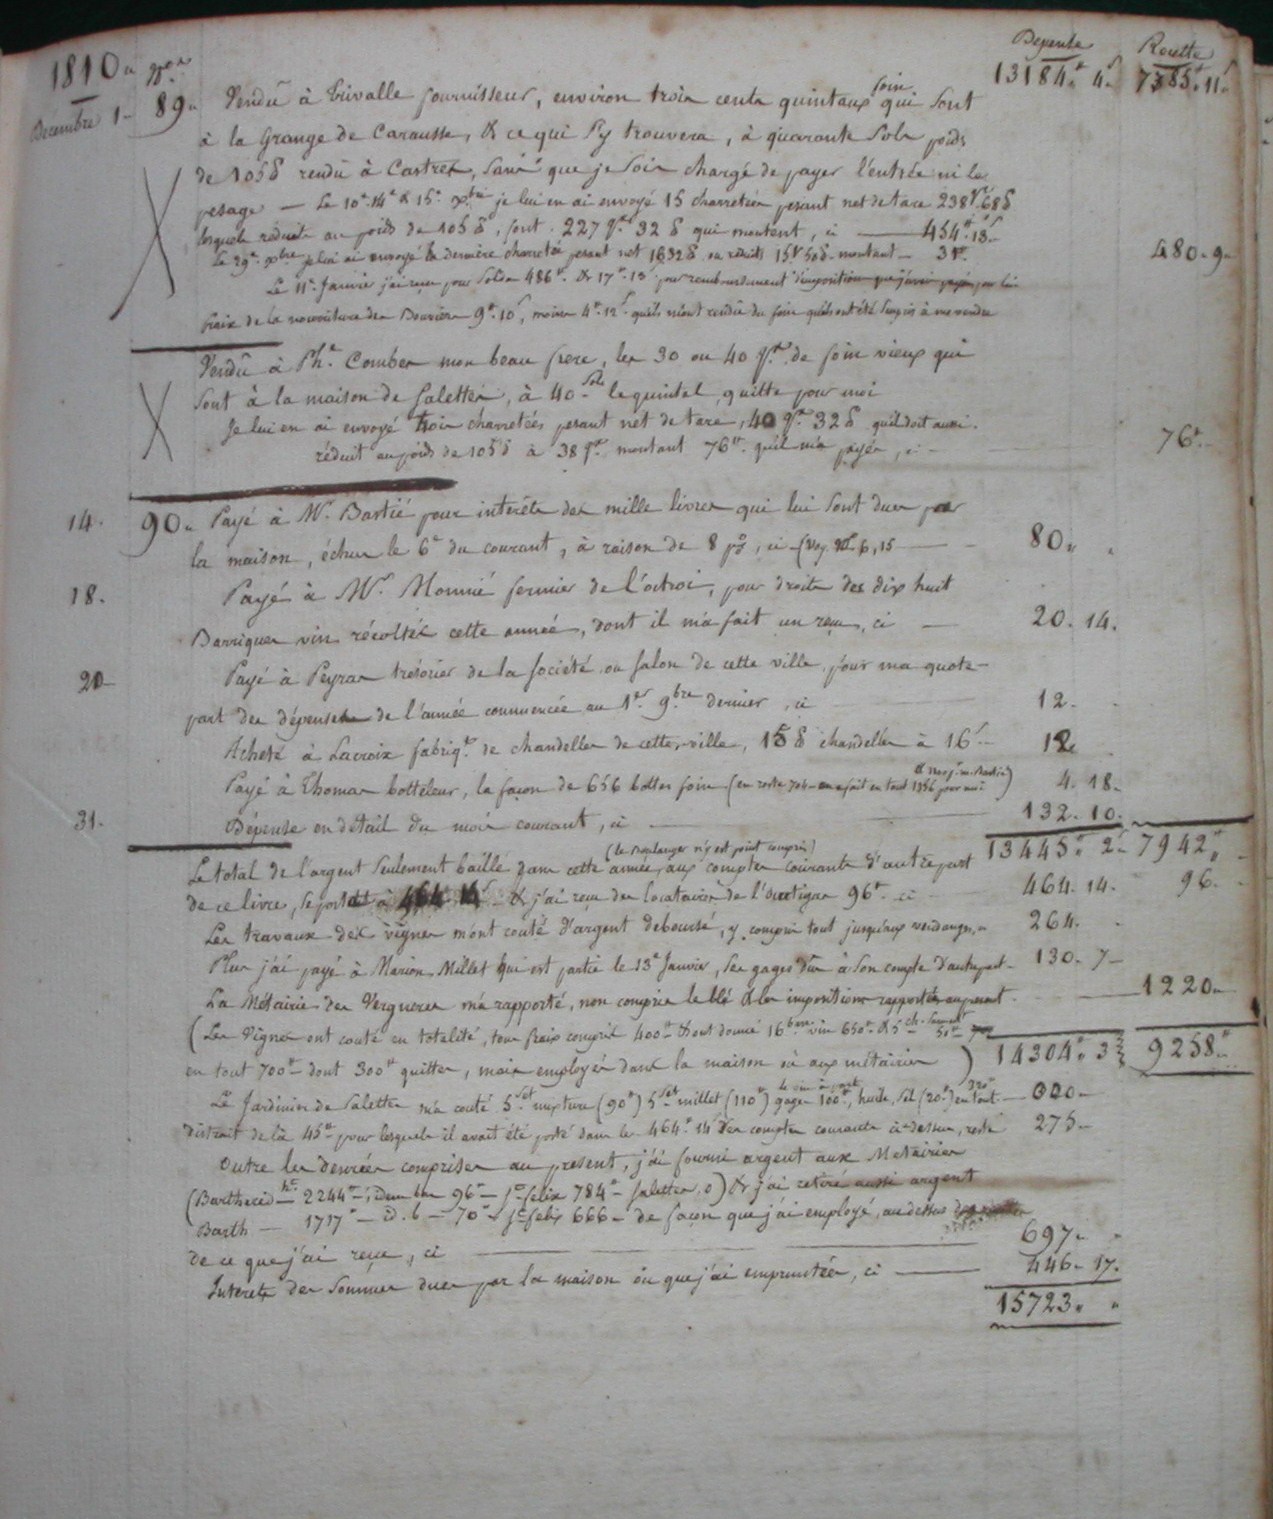 Depense Recette
1810. N.os 13184.# 4.s 7385.# 11.s
Decembre 1. 89. Vendu à Trivalle fournisseur, environ trois cents quintaux foin qui sont
à la Grange de Carausse, & ce qui s'y trouvera, à quarante sols poids
de 105 ₶ rendu à Castres, sans que je sois chargé de payer l'entrée ni le
pesage — Le 10.e 14.e & 15.e Xbre je lui en ai envoyé 15 charretées pesant net de tare 238 q.x 68 ₶
lesquels réduits au poids de 105 ₶, font 227 q.x 32 ₶ qui montent, ci — 454.# 13.s
Le 29.e Xbre je lui ai envoyé la derniere charretée pesant net 1632 ₶ ou réduits 15 q 50 ₶ montant — 31.# 480. 9.
Le 11.e Janvier j'ai reçu pour solde 486.# & 17.# 13.s pour remboursement d'imposition que j'avois payée pour lui
fraix de la nourriture des Bouviers 9.# 10.s, moins 4.# 12.s qu'ils m'ont rendu du foin
Vendu à Ph.e Combes mon beau frere, les 30 ou 40 q.x de foin vieux qui
sont à la maison de Salettes, à 40 sols le quintal, quitte pour moi
Je lui en ai envoyé trois charretées pesant net de tare, 40 q.x 32 ₶ qu'il doit aussi.
réduit au poids de 105 ₶ à 38 q.x montant 76.# qu'il m'a payés, ci — 76.#
14. 90. Payé à M.r Bastié pour interêts des mille livres qui lui sont dues par
la maison, échus le 6.e du courant, à raison de 8 p%, ci — (Voy. N.o 6, 15 — 80. .
18. Payé à M.r Monnié fermier de l'octroi, pour droits des dix huit
Barriques vin récoltées cette année, dont il m'a fait un reçu, ci — 20. 14.
20. Payé à Peyras trésorier de la société ou salon de cette ville, pour ma quote-
part des dépenses de l'année commencée au 1.er 9.bre dernier, ci 12.
Acheté à Lacroix fabriq.t de chandelles de cette ville, 15 ₶ chandelles à 16.s 12.
Payé à Thomas botteleur, la façon de 656 bottes foin (en reste 704 en a fait en tout 1356 pour moi) 4. 18.
31. Dépense en détail du mois courant, ci — 132. 10.
(le boulanger n'y est point compris) 13445.# 2.s 7942.#
Le total de l'argent seulement baillé dans cette année, aux comptes courants d'autrepart
de ce livre, se porte à 464 14.s & j'ai reçu des locataires de l'Oustigas 96.# ci 464. 14. 96.
Les travaux des vignes m'ont couté d'argent deboursé, y compris tout jusqu'aux vendanges, 264.
Plus j'ai payé à Marion Millet qui est partie le 13.e Janvier, ses gages dûs à son compte d'autrepart. 130. 7
La Métairie des Vergneres m'a rapporté, non compris le blé & les impositions 1220.
(Les Vignes ont couté en totalité, tous fraix compris 400.# & ont donné 16 b.ques vin 650.# & 5 ch. sarment 50.#
en tout 700.# dont 300.# quittes, mais employés dans la maison ou aux métairies) 14304.# 3.s 9258.#
Le Jardinier de Salettes m'a couté 5 set. mixture (90.#) 5 set. millet (110.#) gages 100.#, huile, sel (20.#) en tout — 320.#
distrait de là 45.# pour lesquels il avait été porté dans les 464.# 14.s des comptes courants ci-dessus, reste 275.
Outre les denrées comprises au présent, j'ai fourni argent aux Metairies
(Barthe 2244.# 96.# S.t felix 784.# Salettes, 0) & j'ai retiré aussi argent
Barth — 1717.# — id. b — 70.# — S.t felix 666 — de façon que j'ai employé, au dessus
de ce que j'ai reçu, ci — 697.
Interets des sommes dues par la maison ou que j'ai empruntées, ci — 446. 17.
15723. .